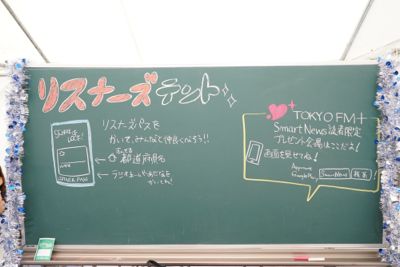 リスナーズテント
リスナーズパスを
かいて、みんなで仲良くなろう!!
SCHOOL OF LOCK!
都道府県名
ラジオネームやあだ名を
かいてね!
TOKYO FM+
SmartNews 読者限定
プレゼント会場はこちらだよ!
画面を見せてね!
SmartNews
検索